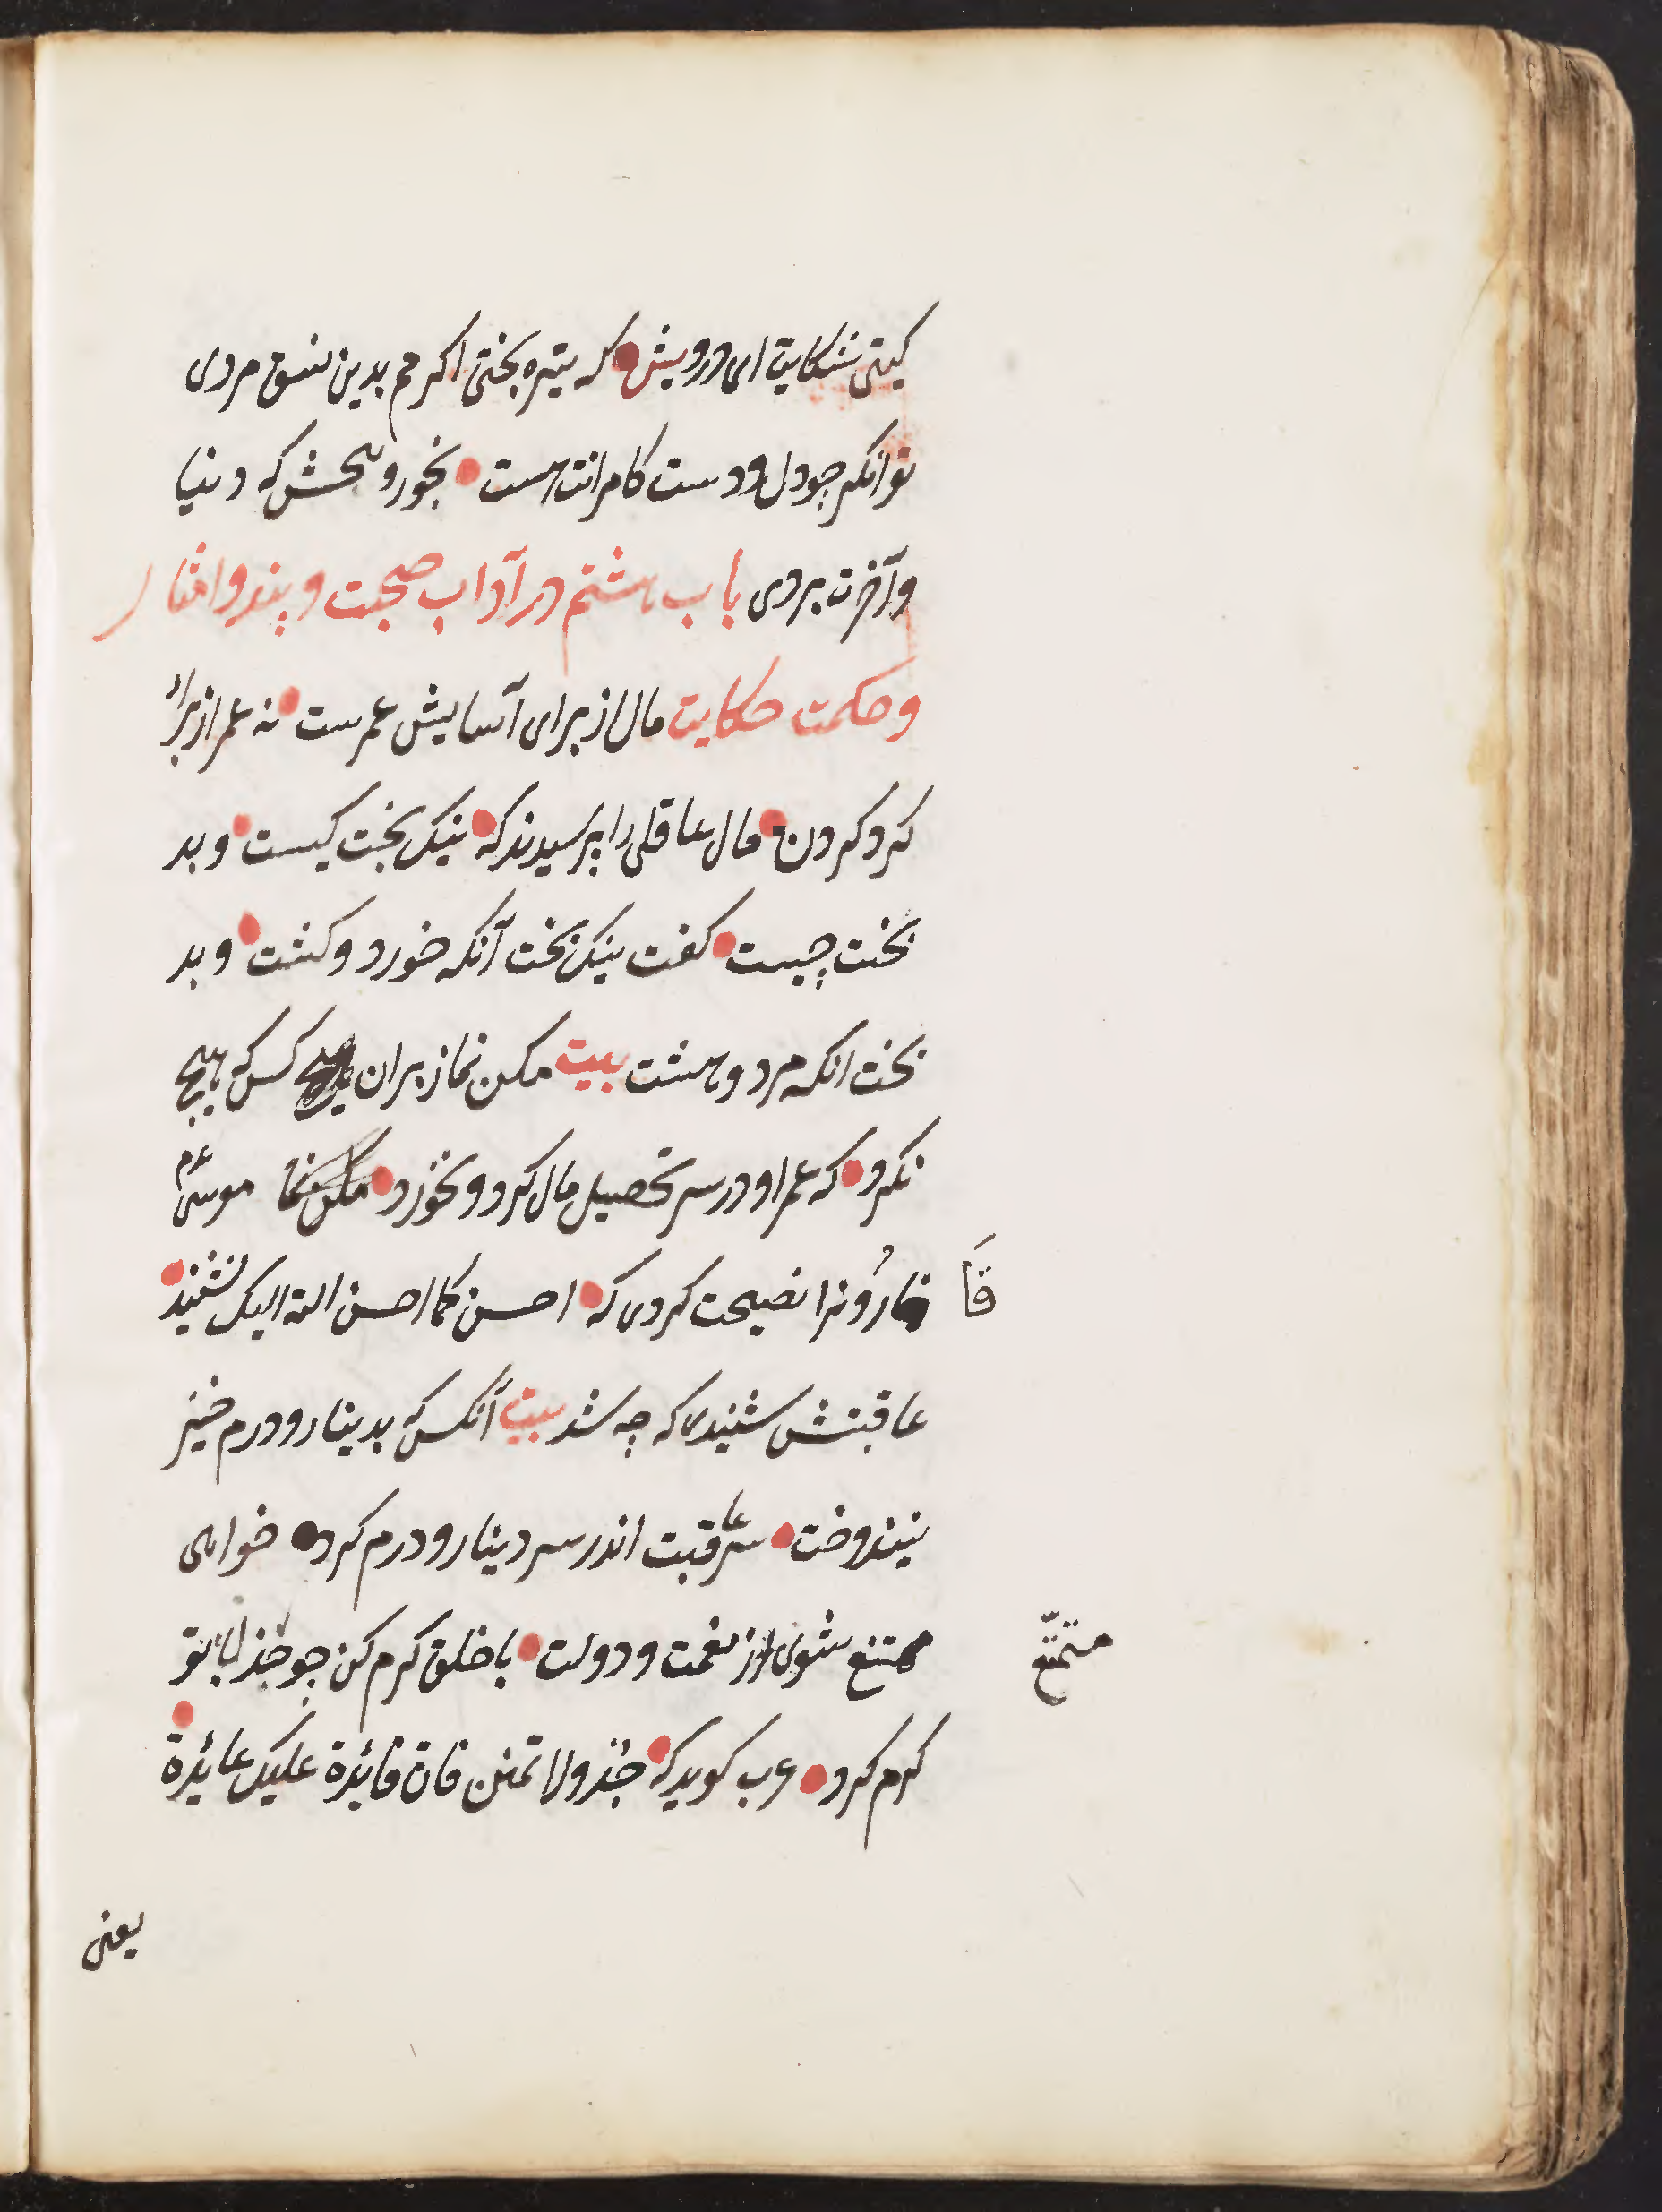 کیتی شکایت ای درویش که تیره بختی اکر هم بدین نسق مردی
توانکر چو دل و دست کامرانت هست بخور و ببخش که دنیا
و آخرت بردی باب هشتم در آداب صحبت و پند و امثار
و حکمت حکایت مال از برای آسایش عمرست نه عمر از برای
کرد کردن مال عاقلی را پرسیدند که نیک بخت کیست و بد
بخت چیست کفت نیک بخت آنکه خورد و کشت و بد
بخت انکه مرد و هشت بیت مکن نماز بران هیچ کس که هیچ
نکرد که عمر او در سر تحصیل مال کرد و نخورد مکن نما موسی عم
قارُونرا نصیحت کردی که احسن کما احسن الله الیک نشنید
قَا
عاقبتش شنیدی که چه شد بیت آنکس که بدینار و درم خیر
نیندوخت سر عاقبت اندر سر دینار و درم کرد خواهی
ممتنع شوی از نعمت و دولت با خلق کرم کن چو خدا با تو
متمتّع
کرم کرد عرب کوید که جُد ولا تمنن فان فائدة علیک عایدة
یعنی